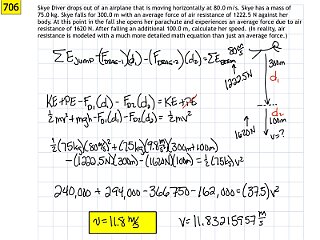 706
Skye Diver drops out of an airplane that is moving horizontally at 80.0 m/s. Skye has a mass of
75.0 kg. Skye falls for 300.0 m with an average force of air resistance of 1222.5 N against her
body. At this point in the fall she opens her parachute and experiences an average force due to air
resistance of 1620 N. After falling an additional 100.0 m, calculate her speed. (In reality, air
resistance is modeled with a much more detailed math equation than just an average force.)
ΣE_jump - (F_D1)(d₁) - (F_D2)(d₂) = ΣE_100m
80 m/s
300m
d₁
1222.5N
d₂
100m
1620N
v=?
KE+PE - F_D1(d₁) - F_D2(d₂) = KE+PE
½mv² + mgh - F_D1(d₁) - F_D2(d₂) = ½mv²
½(75kg)(80 m/s)² + (75kg)(9.8 m/s²)(300m+100m)
-(1222.5N)(300m) - (1620N)(100m) = ½(75kg)v²
240,000 + 294,000 - 366750 - 162,000 = (37.5)v²
v=11.8 m/s
v=11.83215957 m/s